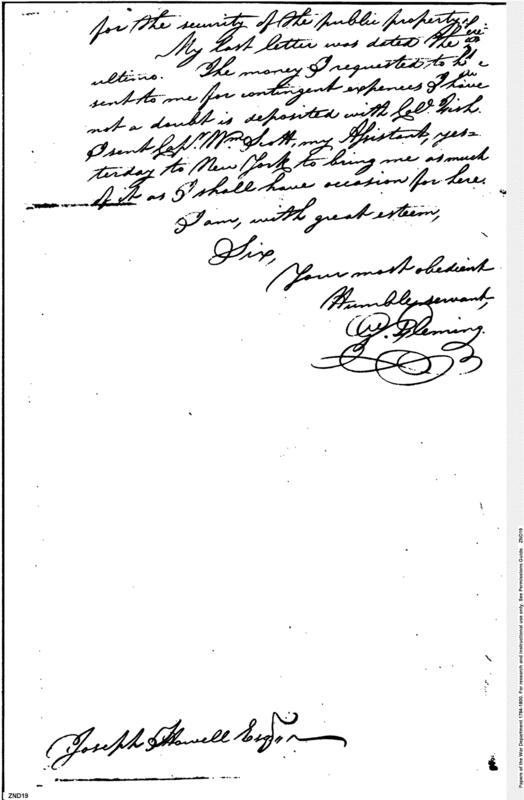 for the security of the public property
My last letter was dated the
ultimo. The money I requested to be
sent to me for contingent expences I have
not a doubt is deposited with Coll. Fish.
I sent Capt. Wm Scott, my Assistant, yes=
terday to New York to bring me as much
of it as I shall have occasion for here.
I am, with great esteem,
Sir,
Your most obedient
Humble servant,
Fleming.
Joseph Howell Esqr.
ZND19
Papers of the War Department 1784-1800. For research and instructional use only. See Permissions Guide. ZND19